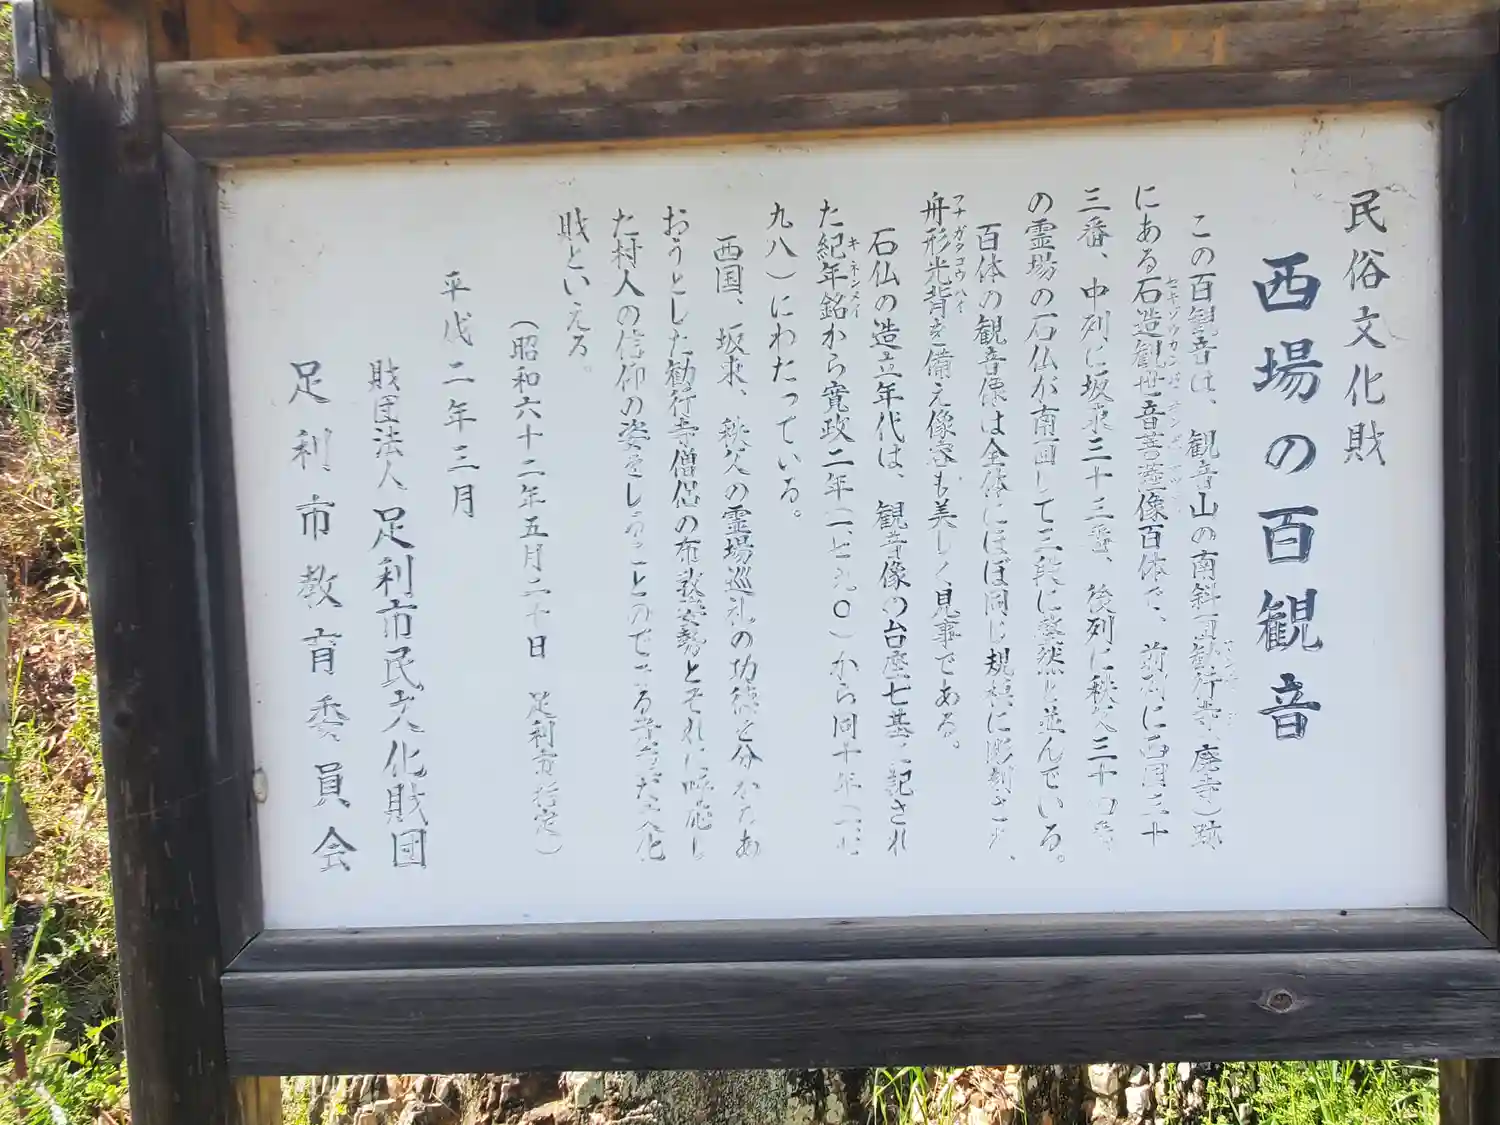 民俗文化財
西場の百観音
この百観音は、観音山の南斜面勧行寺(廃寺)跡
にある石造観世音菩薩像百体で、前列に西国三十
三番、中列に坂東三十三番、後列に秩父三十四番
の霊場の石仏が南面して三段に整然と並んでいる。
百体の観音像は全体にほぼ同じ規格に彫刻され、
舟形光背を備え像容も美しく見事である。
石仏の造立年代は、観音像の台座七基に記され
た紀年銘から寛政二年(一七九〇)から同十年(一七
九八)にわたっている。
西国、坂東、秩父の霊場巡礼の功徳を分かちあ
おうとした勧行寺僧侶の布教姿勢とそれに呼応し
た村人の信仰の姿をしることのできる貴重な文化
財といえる。
(昭和六十二年五月二十日 足利市指定)
平成二年三月
財団法人 足利市民文化財団
足利市教育委員会